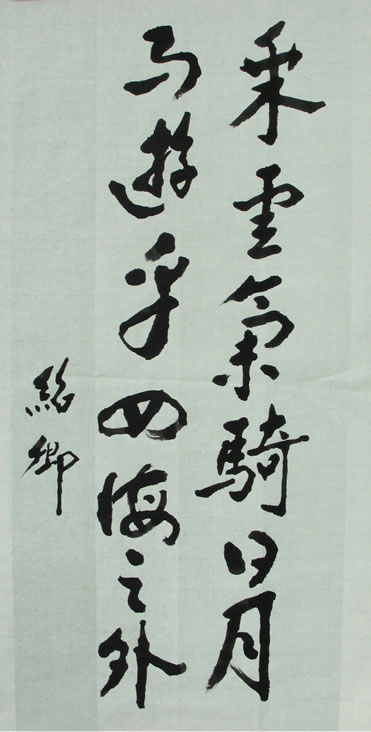 乘雲氣騎日月
而遊乎四海之外
紹卿